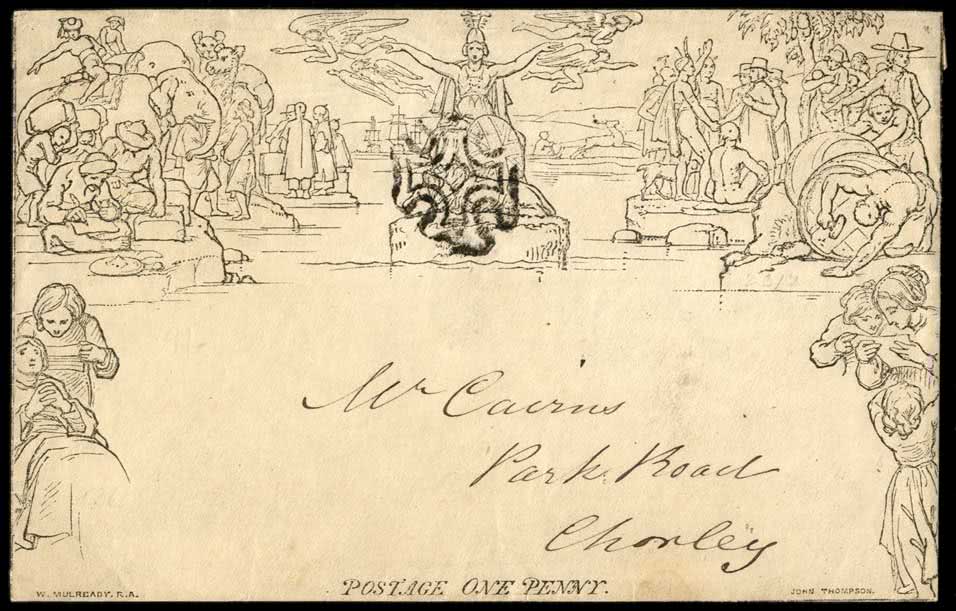 Mr Cairns
Park Road
Chorley
W. MULREADY, R.A.
POSTAGE ONE PENNY.
JOHN THOMPSON.